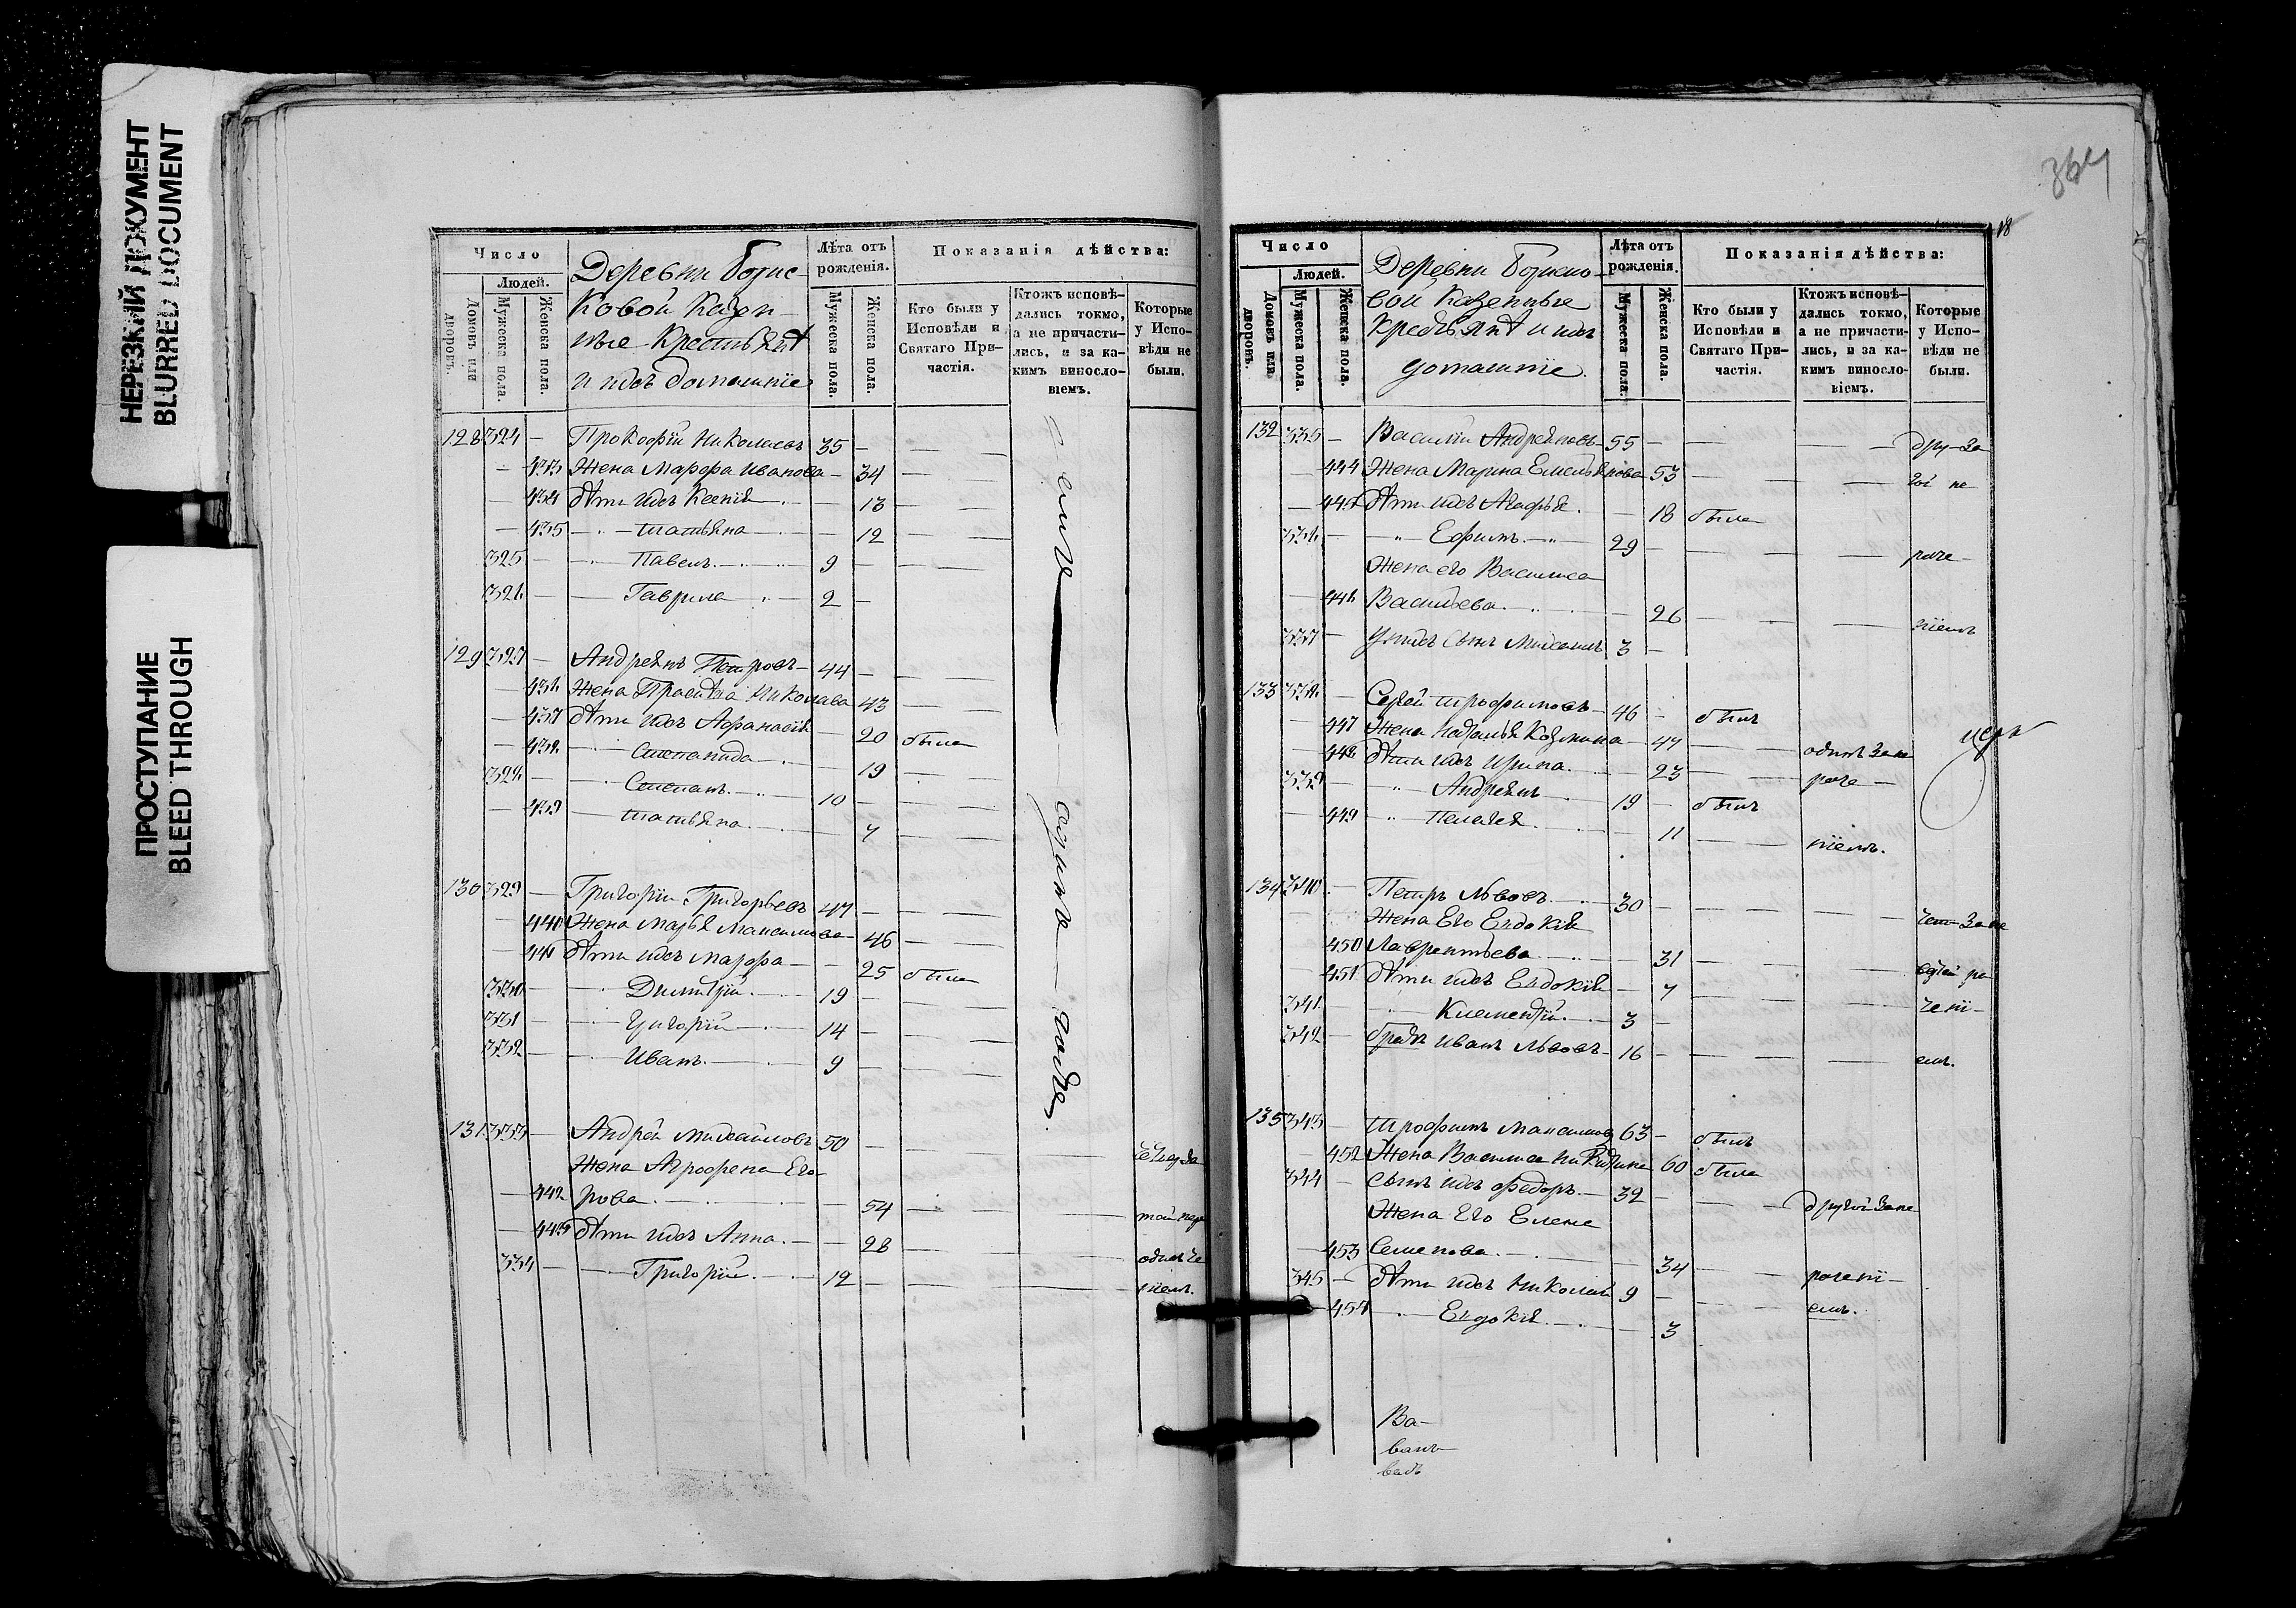 НЕРЕЗКИЙ ДОКУМЕНТ
BLURRED DOCUMENT
ПРОСТУПАНИЕ
BLEED THROUGH
Число
Людей.
Домовъ или дворовъ.
Мужеска пола.
Женска пола.
Деревни
ковой Казен-
ные Крестьянѣ
и ихъ домашніе
Лѣта отъ рожденія.
Мужеска пола.
Женска пола.
Показанія дѣйства:
Кто были у Исповѣди и Святаго Причастія.
Ктожъ исповѣдались токмо, а не причастились, и за какимъ винословіемъ.
Которые у Исповѣди не были.
128 324 — Прокофій Николаевъ 35 —
— 433 Жена Марфа Иванова — 34
— 434 дѣти ихъ Ксенія — 13
— 435 — Татьяна — 12
325 — Павелъ — 9 —
326 — Гаврила — 2 —
129 327 — Андреянъ Петровъ — 44 —
— 436 Жена Николаева 43
— 437 дѣти ихъ Афанасія — 20 была
— 438 — Степанида — 19
328 — Степанъ — 10 —
— 439 — Татьяна — 7
130 329 — Григорій Григорьевъ 47 —
— 440 Жена Марья Максимова — 46
— 441 дѣти ихъ Марфа — 25 была
330 — Димитрій — 19 —
331 — Григорій — 14 —
332 — Иванъ — 9 —
131 333 — Андрей Михайловъ 50 —
Жена Агрофена Его-
— 442 рова — 54
— 443 дѣти ихъ Анна — 28
334 — Григорій — 12 —
364
18
Число
Людей.
Домовъ или дворовъ.
Мужеска пола.
Женска пола.
Деревни
вой Казенные
Крестьянѣ и ихъ
домашніе.
Лѣта отъ рожденія.
Мужеска пола.
Женска пола.
Показанія дѣйства:
Кто были у Исповѣди и Святаго Причастія.
Ктожъ исповѣдались токмо, а не причастились, и за какимъ винословіемъ.
Которые у Исповѣди не были.
132 335 — Василій Андреяновъ — 55 —
— 444 Жена Марина Емельянова 53
— 445 дѣти ихъ Агафья — 18 была
336 — Ефимъ — 29 —
Жена его Василиса
— 446 Васильева — 26
337 — У нихъ сынъ Михаилъ 3 —
133 338 — Сергей Трофимовъ — 46 — былъ
— 447 Жена Наталья Козмина — 47 — одинъ за не
— 448 дѣти ихъ Ирина — 23 — раче —
339 — Андреянъ — 19 — былъ
— 449 — Пелагея — 11 — ніемъ.
134 340 — Петръ Львовъ — 30 —
Жена Его Евдокія
450 Лаврентьева — 31
451 дѣти ихъ Евдокія — 7
341 — Клементій — 3 —
342 — братъ Иванъ Львовъ — 16 —
135 343 — Трофимъ Максимовъ 63 — былъ
— 452 Жена Василиса Никитина 60 была
344 — сынъ ихъ Федоръ — 32 — другой за не
Жена Его Елена
— 453 Семенова — 34 — рачені-
345 — дѣти ихъ Николай 9 — емъ.
— 454 — Евдокія — 3